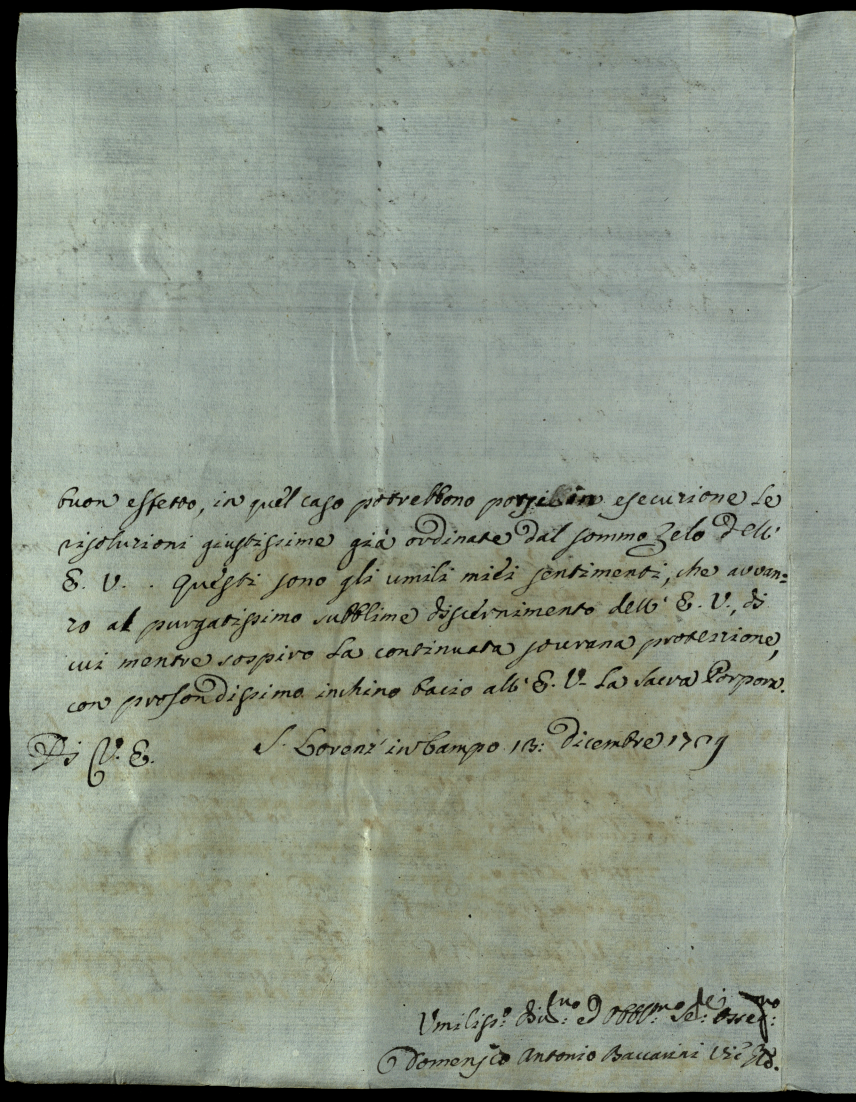 buon effetto, in quel caso potrebbono porsi in esecuzione le
risoluzioni giustissime già ordinate dal sommo Zelo dell'
E. V. . Questi sono gli umili miei sentimenti, che avvan=
zo al purgatissimo subblime discernimento dell' E. V., di
cui mentre sospiro la continuata sovrana protezzione,
con profondissimo inchino bacio all' E. V. la Sacra Porpora.
Di V. E. S. Lorenz' in Campo 13: Dicembre
Umiliss.o Div.mo ed Obbl.mo Ser.
Domenico Antonio Baccarini